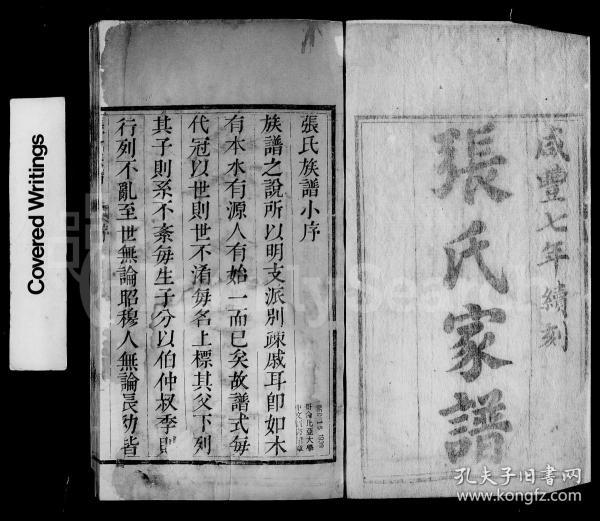 咸豐七年續刻
張氏家譜
張氏族譜小序
族譜之說所以明支派別疎戚耳卽如木
有本水有源人有始一而已矣故譜式每
代冠以世則世不淆每名上標其父下列
其子則系不紊每生子分以伯仲叔季則
行列不亂至世無論昭穆人無論長幼皆
哥倫比亞大學
Covered Writings
孔夫子旧书网
www.kongfz.com